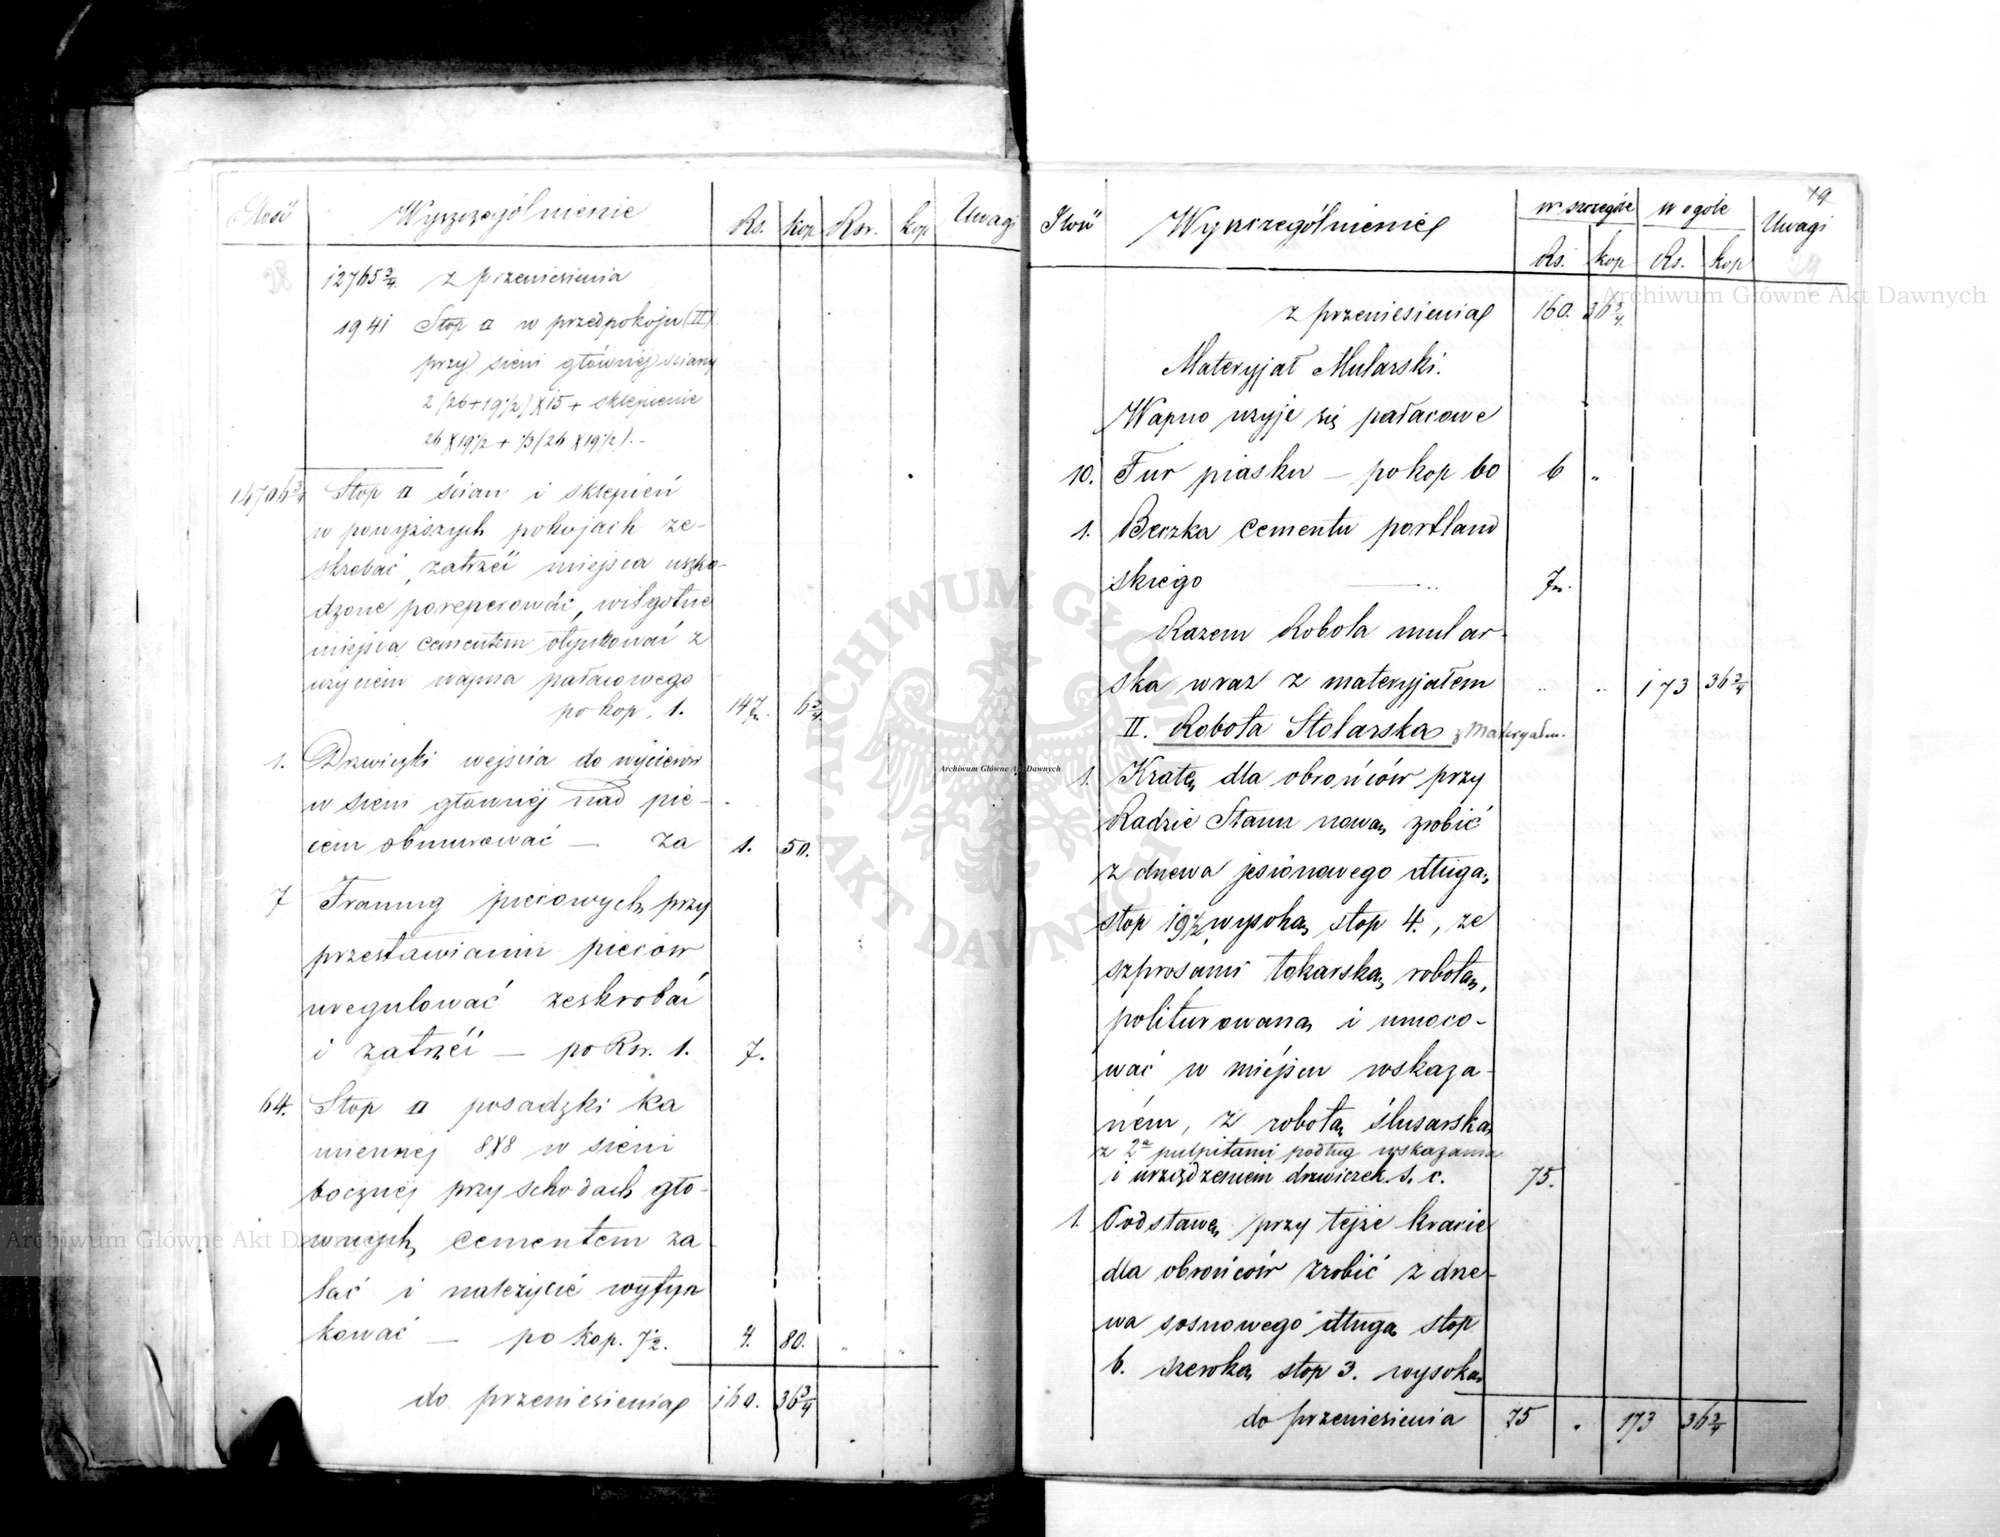 Ilość Wyszczególnienie Rs. kop Rsr. kop Uwagi
12765 3/4 z przeniesienia
1941 Stop □ w przedpokoju (II)
przy sieni głównéj ściany
2 (26+19 1/2) X 15 + sklepienie
26 X 19 1/2 + 1/3 (26 X 19 1/2). –
14706 3/4 Stop □ ścian i sklepień
w powyższych pokojach ze-
skrobać, zatrzéć miejsca uszko-
dzone poreperować, wilgotne
miejsca cementem otynkować z
użyciem wapna pałacowego
po kop. 1. 147 6 3/4
1. Drzwiczki wejścia do wyciorów
w sieni głównéj nad pie-
cem obmurować — za 1. 50.
7 Framug piecowych, przy
przestawianiu pieców
uregulować zeskrobać
i zatrzéć — po Rsr. 1. 7.
64. Stop □ posadzki ka
miennej 8X8 w sieni
bocznéj przy schodach głó-
wnych, cementem za-
lać i należycie wytyn
kować — po kop. 7 1/2. 4. 80. „ „
do przeniesienia 160. 36 3/4
19
Ilość Wyszczególnienie w szczególe w ogóle Uwagi
Rs. kop Rs. kop
z przeniesienia 160. 36 3/4
Materyjał Mularski.
Wapno użyje się pałacowe
10. Fur piasku — po kop 60 6 „
1. Beczka cementu portland
skiego — 7
Razem Robota mular-
ska wraz z materyjałem „ „ 173 36 3/4
II. Robota Stolarska z Materyałem.
1. Kratę dla obrońców przy
Radzie Stanu nową zrobić
z drzewa jesionowego długą
stop 19 1/2 wysoką stop 4., ze
szprosami tokarską robotą,
politurowaną i umoco-
wać w miéjscu wskaza-
ném, z robotą ślusarską
z 2a pulpitami podług wskazania
i urządzeniem drzwiczek. s. c. 75.
1. Podstawę przy tejże kracie
dla obrońców zrobić z drze-
wa sosnowego długą stop
6. szeroką stop 3. wysoką
do przeniesienia 75 „ 173 36 3/4
Archiwum Główne Akt Dawnych
Archiwum Główne Akt Dawnych
Archiwum Główne Akt Dawnych
ARCHIWUM GŁÓWNE AKT DAWNYCH